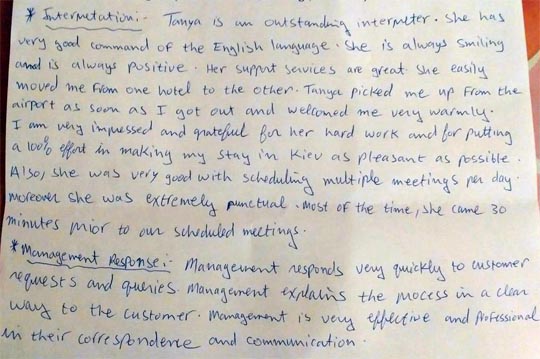 * Interpretation:- Tanya is an outstanding interpreter. She has
very good command of the English language. She is always smiling
and is always positive. Her support services are great. She easily
moved me from one hotel to the other. Tanya picked me up from the
airport as soon as I got out and welcomed me very warmly.
I am very impressed and grateful for her hard work and for putting
a 100% effort in making my stay in Kiev as pleasant as possible.
Also, she was very good with scheduling multiple meetings per day.
Moreover she was extremely punctual. Most of the time, she came 30
minutes prior to our scheduled meetings.
* Management Response:- Management responds very quickly to customer
requests and queries. Management explains the process in a clear
way to the customer. Management is very effective and professional
in their correspondence and communication.